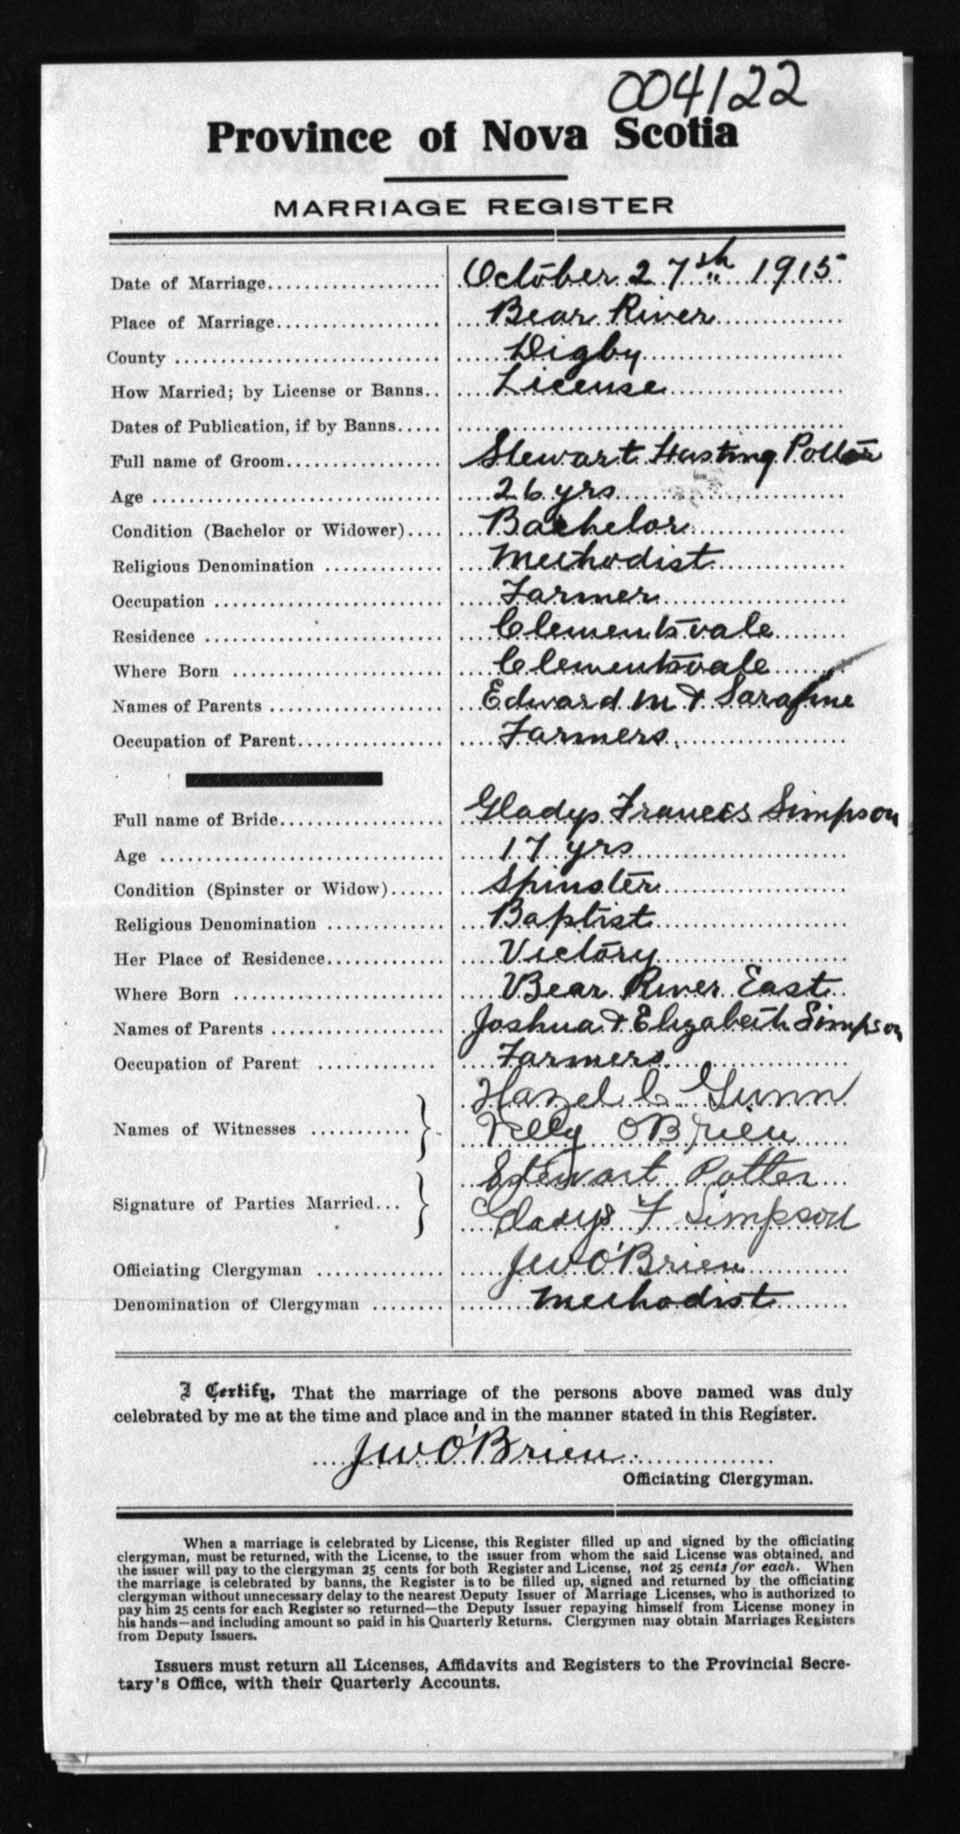 004122
Province of Nova Scotia
MARRIAGE REGISTER
Date of Marriage................... October 27th 1915
Place of Marriage.................. Bear River
County .............................. Digby
How Married; by License or Banns.. License
Dates of Publication, if by Banns.....
Full name of Groom.................. Stewart Hasting Potter
Age ................................. 26 yrs
Condition (Bachelor or Widower).... Bachelor
Religious Denomination ............. Methodist
Occupation .......................... Farmer
Residence ........................... Clementsvale
Where Born ......................... Clementsvale
Names of Parents ................... Edward M & Sarafine
Occupation of Parent................ Farmers
Full name of Bride.................. Gladys Frances Simpson
Age ................................. 17 yrs
Condition (Spinster or Widow)...... Spinster
Religious Denomination ............. Baptist
Her Place of Residence............. Victory
Where Born ......................... Bear River East
Names of Parents ................... Joshua & Elizabeth Simpson
Occupation of Parent ............. Farmers
Hazel C Gunn
Names of Witnesses ...........
O'Brien
Stewart Potter
Signature of Parties Married...
Gladys F Simpson
Officiating Clergyman .............. JW O'Brien
Denomination of Clergyman ........ Methodist
I Certify, That the marriage of the persons above named was duly
celebrated by me at the time and place and in the manner stated in this Register.
JW O'Brien
Officiating Clergyman.
When a marriage is celebrated by License, this Register filled up and signed by the officiating
clergyman, must be returned, with the License, to the issuer from whom the said License was obtained, and
the issuer will pay to the clergyman 25 cents for both Register and License, not 25 cents for each. When
the marriage is celebrated by banns, the Register is to be filled up, signed and returned by the officiating
clergyman without unnecessary delay to the nearest Deputy Issuer of Marriage Licenses, who is authorized to
pay him 25 cents for each Register so returned—the Deputy Issuer repaying himself from License money in
his hands—and including amount so paid in his Quarterly Returns. Clergymen may obtain Marriages Registers
from Deputy Issuers.
Issuers must return all Licenses, Affidavits and Registers to the Provincial Secre-
tary's Office, with their Quarterly Accounts.